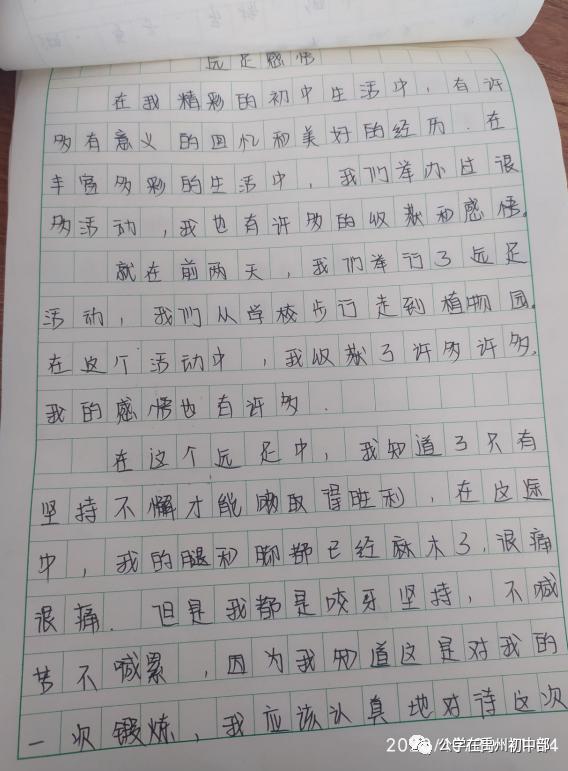 远足感悟
在我精彩的初中生活中，有许
多有意义的回忆和美好的经历.在
丰富多彩的生活中，我们举办过很
多活动，我也有许多的收获和感悟。
就在前两天，我们举行了远足
活动，我们从学校步行走到植物园。
在这个活动中，我收获了许多许多。
我的感悟也有许多.
在这个远足中，我知道了只有
坚持不懈才能取得胜利，在这途
中，我的腿和脚都已经麻木了，很痛
很痛.但是我都是咬牙坚持，不喊
苦不喊累，因为我知道这是对我的
一次锻炼，我应该认真地对待这次
公学在禹州初中部